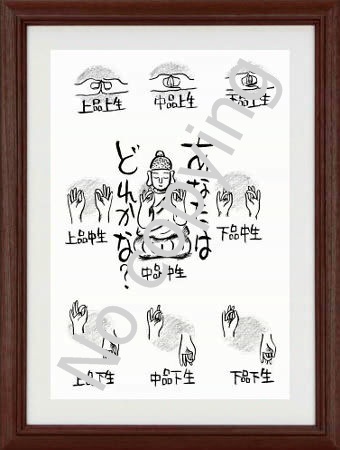 上品上生
中品上生
下品上生
あなたは
どれかな?
上品中生
中品中生
下品中生
上品下生
中品下生
下品下生
No copying